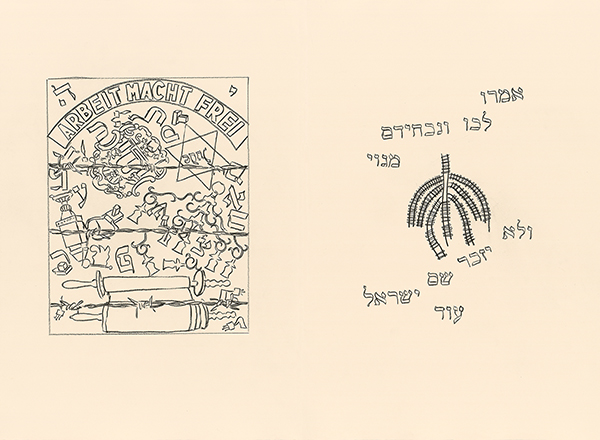 ה
י
ARBEIT MACHT FREI
אמרו
לכו ונכחידם
מגוי
ולא
יזכר
שם
ישראל
עוד